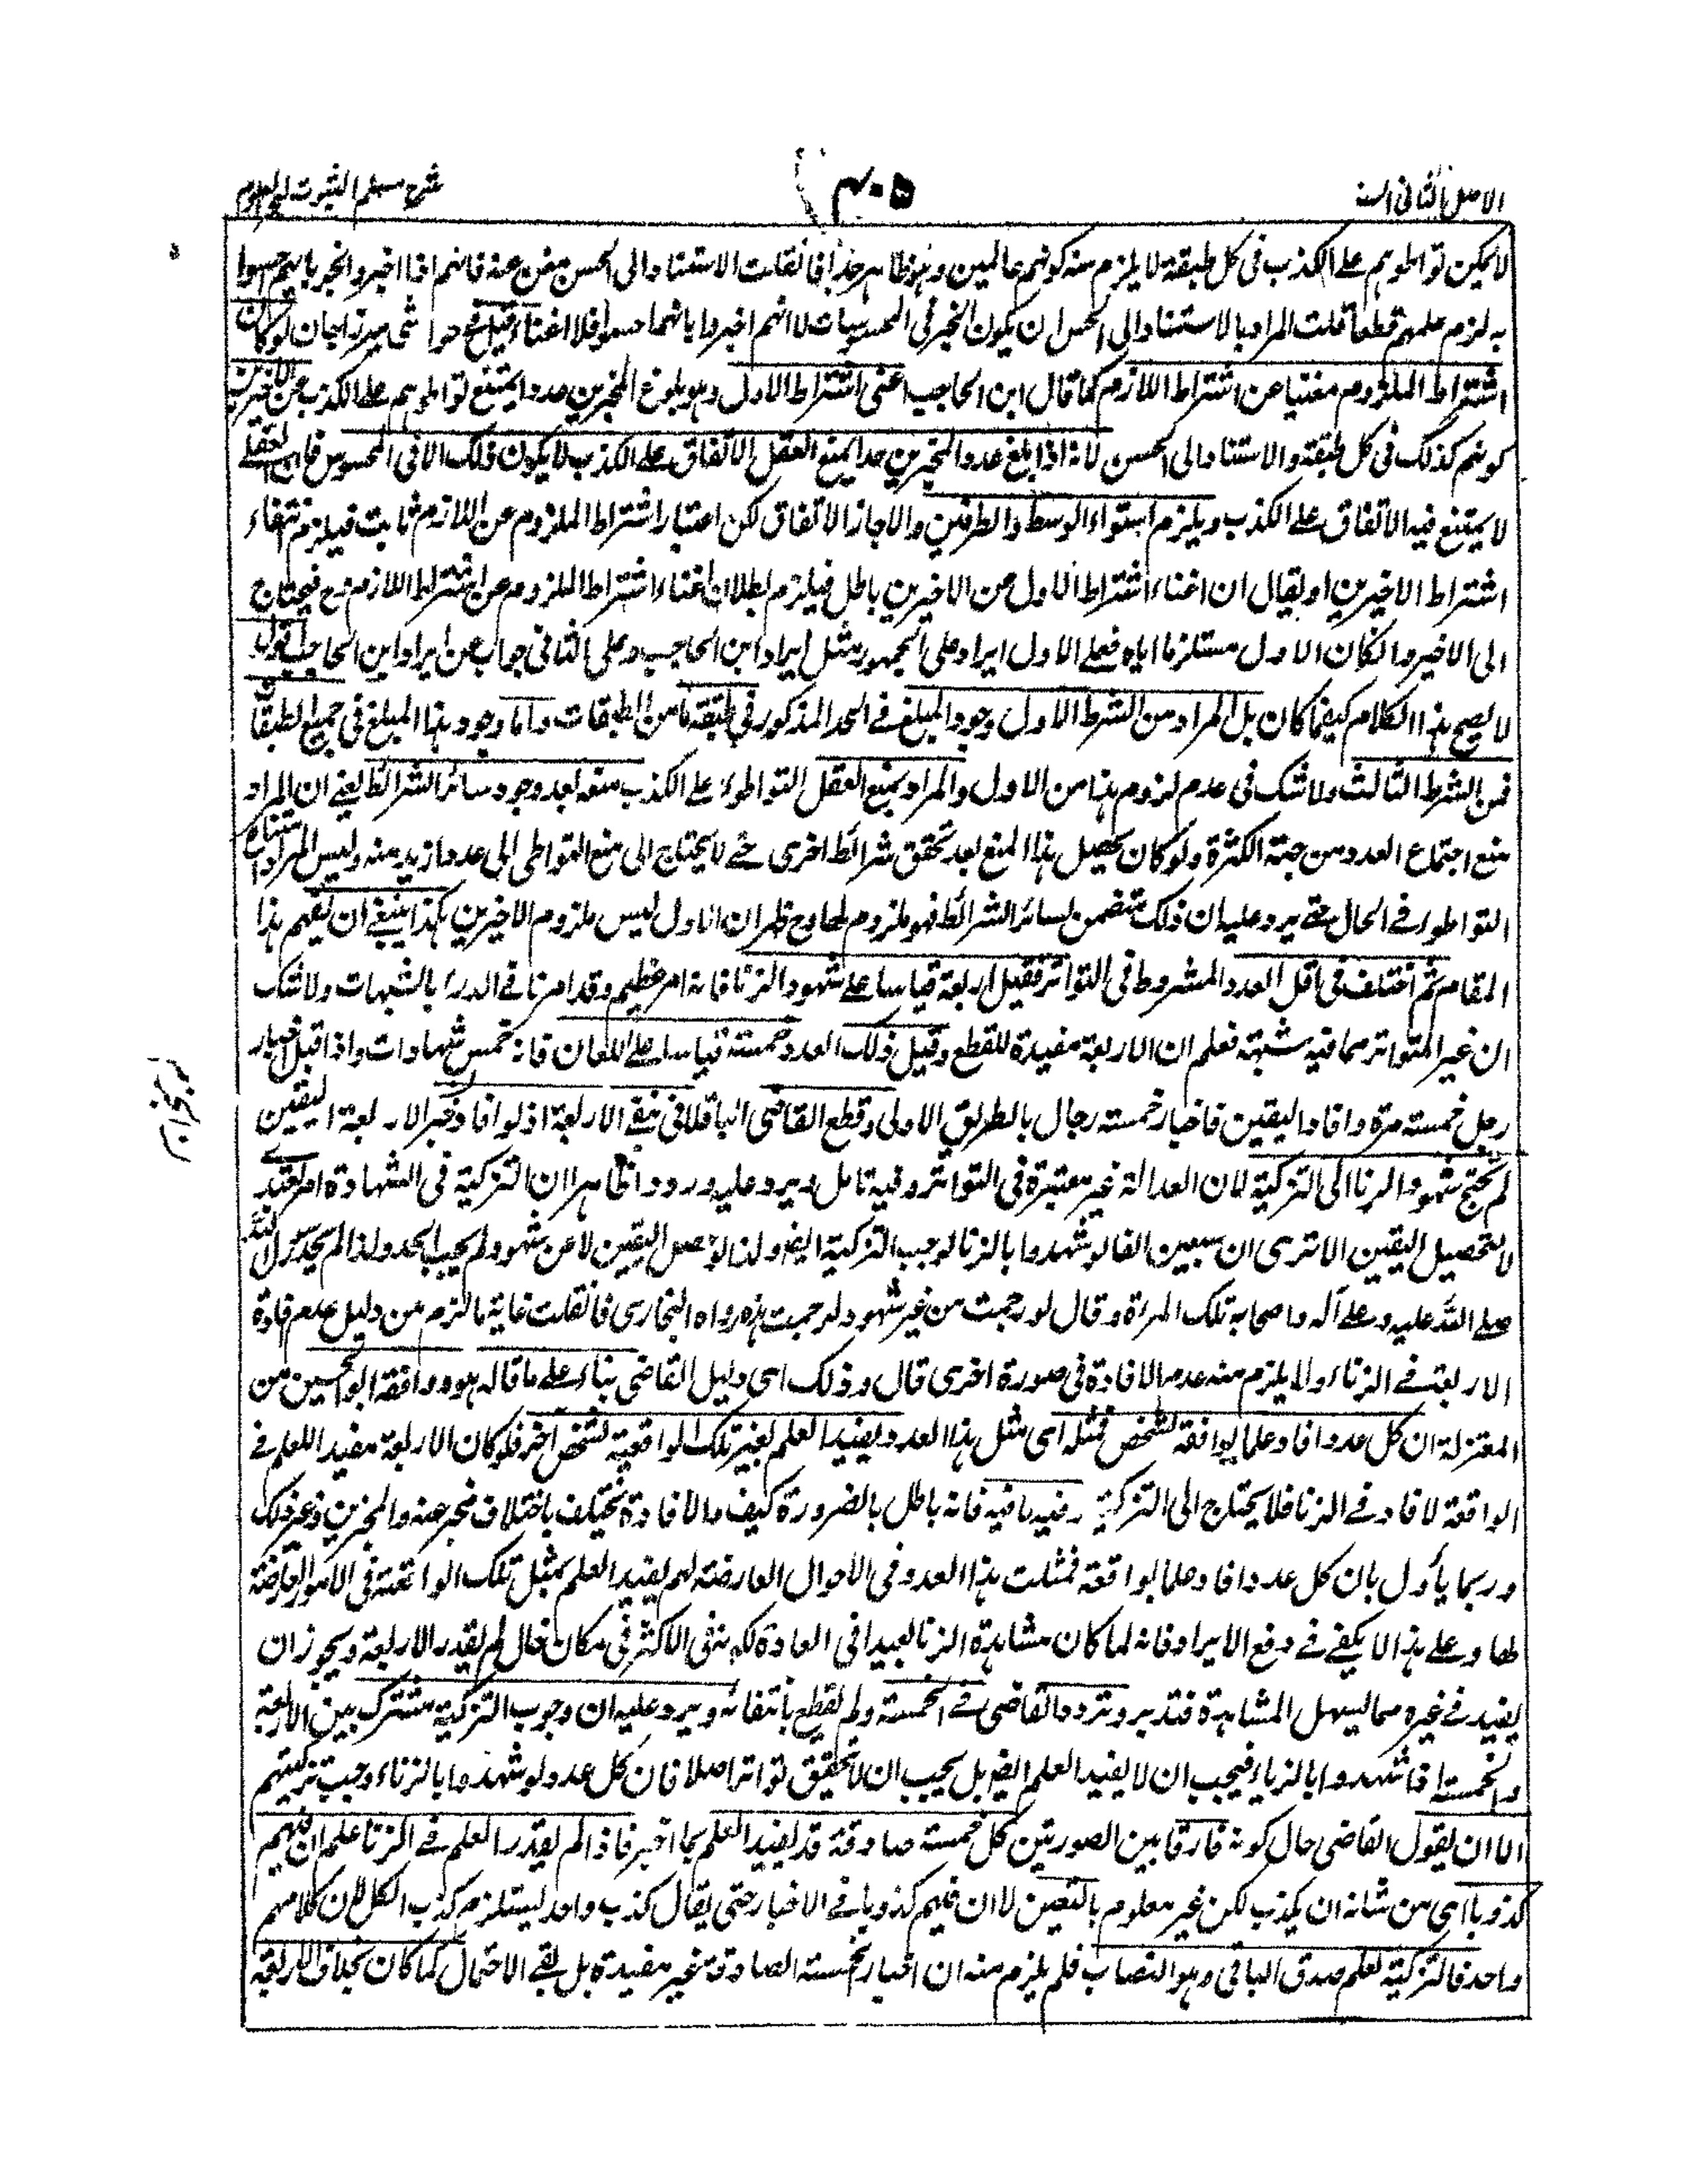 الاصل الثانی السنة
۴۰۵
شرح مسلم الثبوت لبحر العلوم
لا یمکن تواطوهم علی الکذب فی کل طبقة لا یلزم منه کونهم عالمین وهو ظاهر جدا فانقلت الاستناد الی الحس مغن عنه فانهم اذا اخبروا بانهم احسوا
به لزم علمهم قطعا قلت المراد بالاستناد الی الحس ان یکون الخبر فی المحسوسات لا انهم اخبروا بانهما حسوا فلا اغناء قیل فی حواشی میرزا جان لو کان
اشتراط الملزوم مغنیا عن اشتراط اللازم کما قال ابن الحاجب اغنی اشتراط الاول وهو بلوغ المخبرین عددا یمتنع تواطوهم علی الکذب عن الاخیرین
کونهم کذلک فی کل طبقة والاستناد الی الحس لانه اذا بلغ عدد المخبرین حدا یمنع العقل الاتفاق علی الکذب لا یکون ذلک الا فی المحسوس فان العقلی
لا یمتنع فیه الاتفاق علی الکذب ویلزم استواء الوسط والطرفین والا جاز الاتفاق لکن اعتبار اشتراط الملزوم عن اللازم ثابت فیلزم انتفاء
اشتراط الاخیرین او یقال ان اغناء اشتراط الاول عن الاخیرین باطل فیلزم بطلان اغناء اشتراط الملزوم عن اشتراط اللازم وح فیحتاج
الی الاخیر وان کان الاول مستلزما ایاه فعلی الاول ایراد علی الجمهور مثل ایراد ابن الحاجب وعلی الثانی جواب عن ایراد ابن الحاجب اقول
لا یصح هذا الکلام کیفما کان بل المراد من الشرط الاول وجود المبلغ فی الحد المذکور فی طبقة ما من الطبقات واما وجود هذا المبلغ فی جمیع الطبقات
فمن الشرط الثالث ولا شک فی عدم لزوم هذا من الاول والمراد بمنع العقل التواطوء علی الکذب منعه بعد وجود سائر الشرائط یعنی ان المراد
منع اجتماع العدد من جهة الکثرة ولو کان یحصل هذا المنع بعد تحقق شرائط اخری حتی لا یحتاج الی منع التواطی الی عدد ازید منه ولیس المراد امتناع
التواطوء فی الحال حتی یرد علیه ان ذلک متضمن لسائر الشرائط فهو ملزوم لها وح ظهر ان الاول لیس ملزوم الاخیرین هکذا ینبغی ان یفهم هذا
المقام ثم اختلف فی اقل العدد المشروط فی التواتر فقیل اربعة قیاسا علی شهود الزنا فانه امر عظیم وقد امرنا فی الدرء بالشبهات ولا شک
ان غیر المتواتر مما فیه شبهة فعلم ان الاربعة مفیدة للقطع وقیل ذلک العدد خمسة قیاسا علی اللعان فانه خمس شهادات واذا قبل اخبار
رجل خمسة مرة وافاد الیقین فاخبار خمسة رجال بالطریق الاولی وقطع القاضی الباقلانی بنفی الاربعة اذ لو افاد خبر الاربعة الیقین
لم یحتج شهود الزنا الی التزکیة لان العدالة غیر معتبرة فی التواتر وفیه تامل ویرد علیه ورودا ظاهرا ان التزکیة فی الشهادة امر تعبدی
لا لتحصیل الیقین الا تری ان سبعین الفا لو شهدوا بالزنا لوجب التزکیة ایضا ولذا لو حصل الیقین لا عن شهود لم یجب الحد ولذا لم یحد رسول الله
صلی الله علیه وعلی آله واصحابه تلک المراة وقال لو رجمت من غیر شهود لرجمت هذه رواه البخاری فانقلت غایة ما لزم من دلیل عدم افادة
الاربعة فی الزناء ولا یلزم منه عدم الافادة فی صورة اخری قال وذلک ای دلیل القاضی بناء علی ما قاله هو ووافقه ابو الحسین من
المعتزلة ان کل عدد افاد علما بواقعة لشخص فمثله ای مثل هذا العدد یفید العلم بغیر تلک الواقعة لشخص آخر فلو کان الاربعة مفیدا للعلم فی
الواقعة لافاد فی الزنا فلا یحتاج الی التزکیة وفیه ما فیه فانه باطل بالضرورة کیف والافادة تختلف باختلاف مخبر عنه والمخبرین وغیر ذلک
وربما یأول بان کل عدد افاد علما بواقعة فمثلت هذا العدد فی الاحوال العارضة لهم یفید العلم بمثل تلک الواقعة فی الامور العارضة
لها وعلی هذا لا یکفی فی دفع الایراد فانه لما کان مشاهدة الزنا بعیدا فی العادة لکونه فی الاکثر فی مکان خال لم یفد الاربعة ویجوز ان
یفید فی غیره مما یسهل المشاهدة فتدبر وتردد القاضی فی الخمسة ولم یقطع بانتفائه ویرد علیه ان وجوب التزکیة مشترک بین الاربعة
والخمسة اذا شهدوا بالزناء فیجب ان لا یفید العلم ایضا بل یجب ان لا تحقق تواترا اصلا فان کل عدد لو شهدوا بالزناء وجب تزکیتهم
الا ان یقول القاضی حال کونه فارقا بین الصورتین کل خمسة صادقة قد یفید العلم بما اخبر فاذا لم یفد العلم فی الزنا علم ان فیهم
کذوبا ای من شانه ان یکذب لکن غیر معلوم بالتعین لا ان فیهم کذوبا فی الاخبار حتی یقال کذب واحد یستلزم کذب الکل لان کلامهم
واحد فالتزکیة لعلم صدق الباقی وهو النصاب فلم یلزم منه ان اخبار الخمسة الصادقة غیر مفیدة بل بقی الاحتمال کما کان بخلاف الاربعة